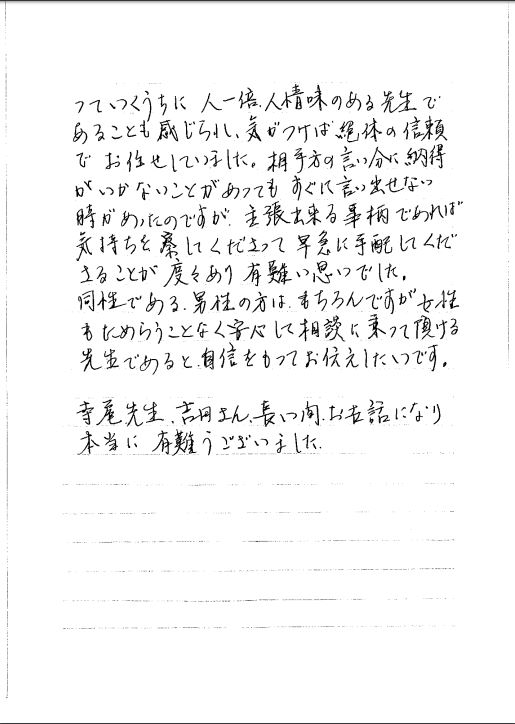 っていくうちに 人一倍、人情味のある先生で
あることも感じられ、気がつけば絶体の信頼
で お任せしていました。相手方の言い分に納得
がいかないことがあっても すぐに言い出せない
時があったのですが、主張出来る事柄であれば
気持ちを察してくださって 早急に手配してくだ
さることが 度々あり 有難い思いでした。
同性である、男性の方は、もちろんですが 女性
もためらうことなく安心して相談に乗って頂ける
先生であると、自信をもってお伝えしたいです。
寺尾先生、吉田さん、長い間、お世話になり
本当に 有難うございました。